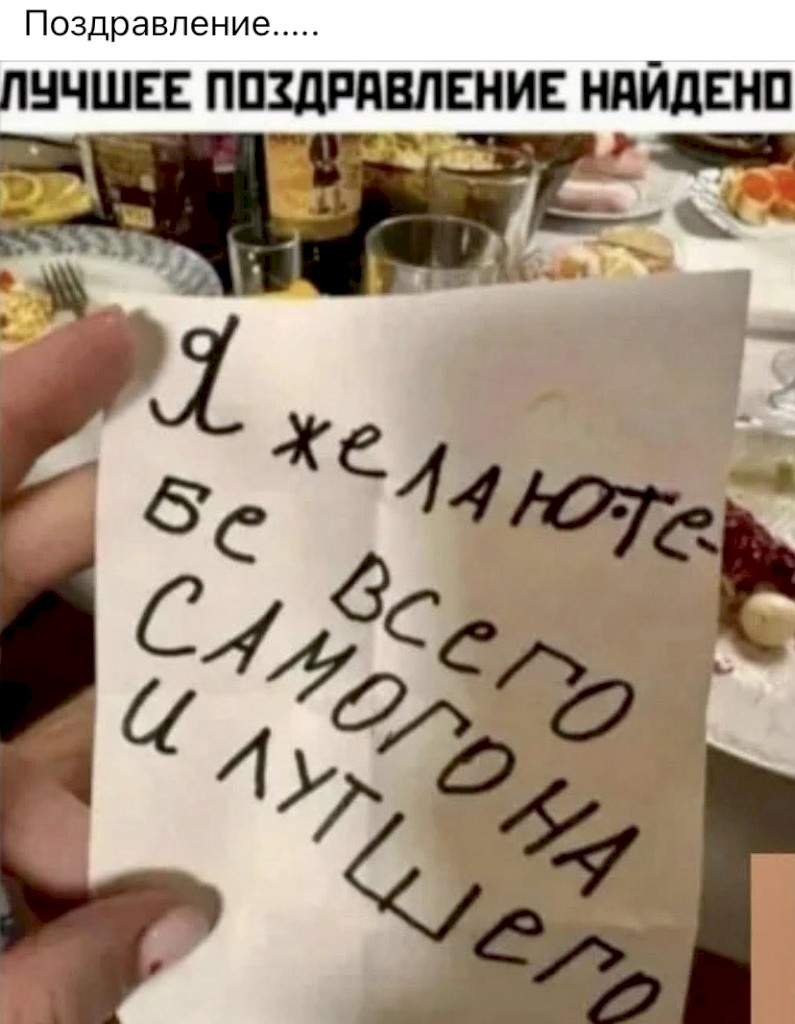 Поздравление.....
ЛУЧШЕЕ ПОЗДРАВЛЕНИЕ НАЙДЕНО
Я желАЮ ТЕ-
бе всего
САМОГОНА
И ЛУТШего